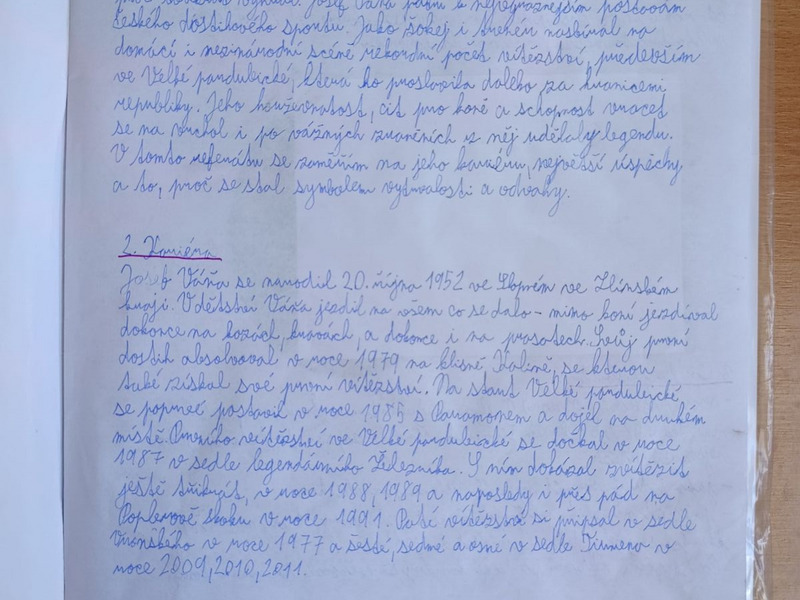 Josef Váňa patří k nejvýraznějším postavám
českého dostihového sportu. Jako žokej i trenér nasbíral na
domácí i mezinárodní scéně rekordní počet vítězství, především
ve Velké pardubické, která ho proslavila daleko za hranicemi
republiky. Jeho houževnatost, cit pro koně a schopnost vracet
se na vrchol i po vážných zraněních z něj udělaly legendu.
V tomto referátu se zaměřím na jeho kariéru, největší úspěchy
a to, proč se stal symbolem vytrvalosti a odvahy.
2. Kariéra
Josef Váňa se narodil 20. října 1952 ve Slopném ve Zlínském
kraji. V dětství Váňa jezdil na všem co se dalo - mimo koní jezdíval
dokonce na kozách, kravách, a dokonce i na prasatech. Svůj první
dostih absolvoval v roce 1979 na klisně Kalině, se kterou
také získal své první vítězství. Na start Velké pardubické
se poprvé postavil v roce 1985 s Paramonem a dojel na druhém
místě. Prvního vítězství ve Velké pardubické se dočkal v roce
1987 v sedle legendárního Železníka. S ním dokázal zvítězit
ještě třikrát, v roce 1988, 1989 a naposledy i přes pád na
Poplerově skoku v roce 1991. Páté vítězství si připsal v sedle
Vronského v roce 1977 a šesté, sedmé a osmé v sedle Tiumena v
roce 2009, 2010, 2011.